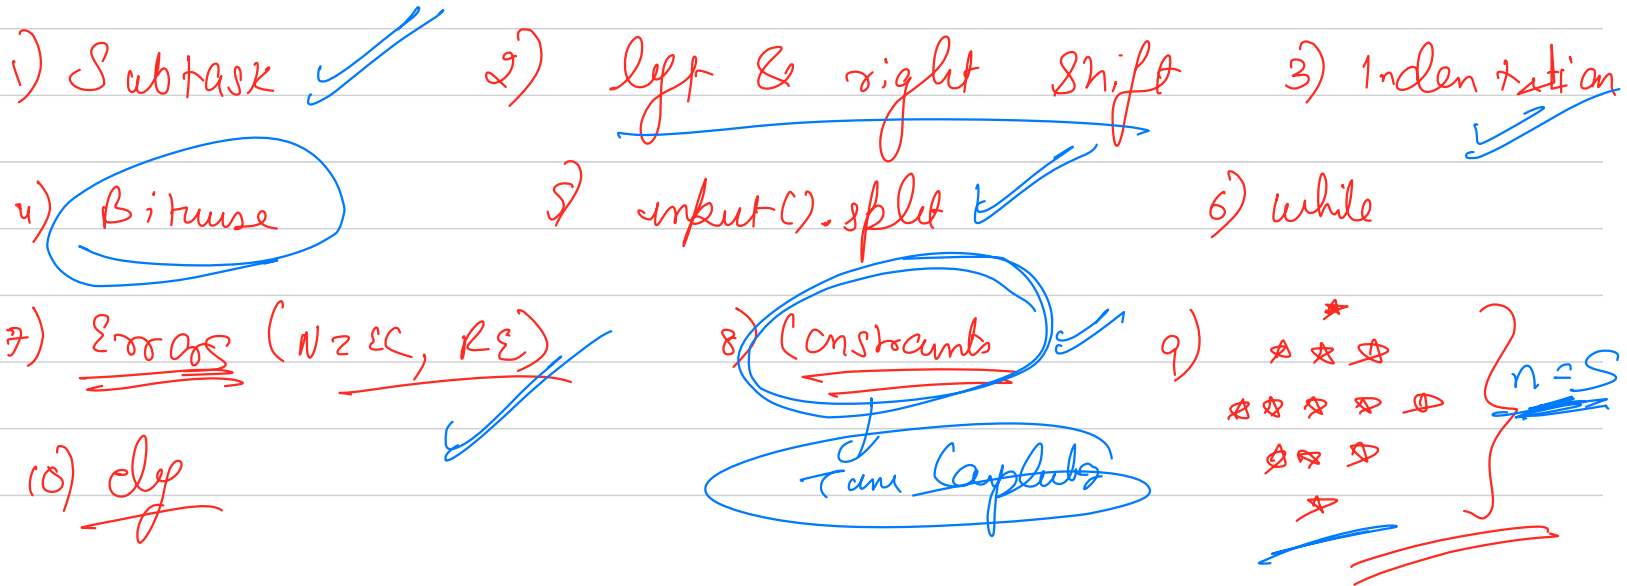 1) Subtask 2) left & right shift 3) Indentation
4) Bitwise 5) input().split 6) while
7) Errors (NZEC, RE) 8) Constraints 9)
n=5
10) elif
Time Complexity